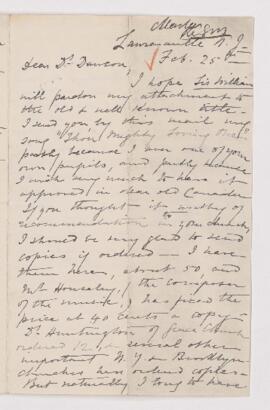 Lawrenceville N. J.
Feb. 25th
Dear Dr. Dawson,
I hope Sir William
will pardon my attachment to
the old & well known title—
I send you by this mail my
song "Thou Mighty Loving One"
partly because I was one of your
own pupils, and partly because
I wish very much to have it
approved in dear old Canada
If you thought it worthy of
recommendation to your church,
I should be very glad to send
copies if ordered— I have
them here, about 50, and
Mr. Housely, (the composer
of the music,) has fixed the
price at 40 cents a copy—
Dr. Huntington of Grace Church
ordered 12, & several other
important N. Y. or Brooklyn
churches have ordered copies—
But naturally I long to have